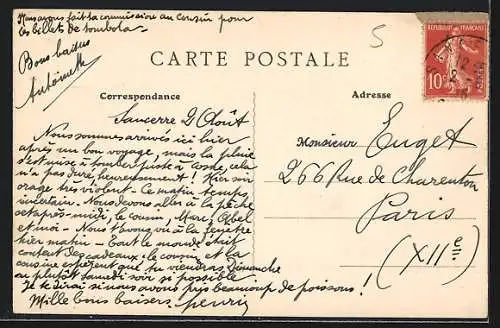 Nous avons fait la commission au cousin pour
les billets de tombola.
Bons baisers
Antoinette
5
CARTE POSTALE
REPUBLIQUE FRANÇAISE
10c
Correspondance
Adresse
Sancerre 2 Août
Nous sommes arrivés ici hier
après un bon voyage, mais la pluie
s'est mise à tomber juste à Cosne, cela
n'a pas duré heureusement! Hier soir
orage très violent - Ce matin temps
incertain. Nous devons aller à la pêche
cet après-midi, le cousin, Marc, Abel
et moi - Nous t'avons vu à la fenêtre
hier matin - Tout le monde était
content des cadeaux. Le cousin et la
cousine espèrent que tu viendras Dimanche
au plutôt Samedi soir si possible
Je te dirai si nous avons pris beaucoup de poissons!
Mille bons baisers. Henri
Monsieur Euget
266 Rue de Charenton
Paris
(XIIe)